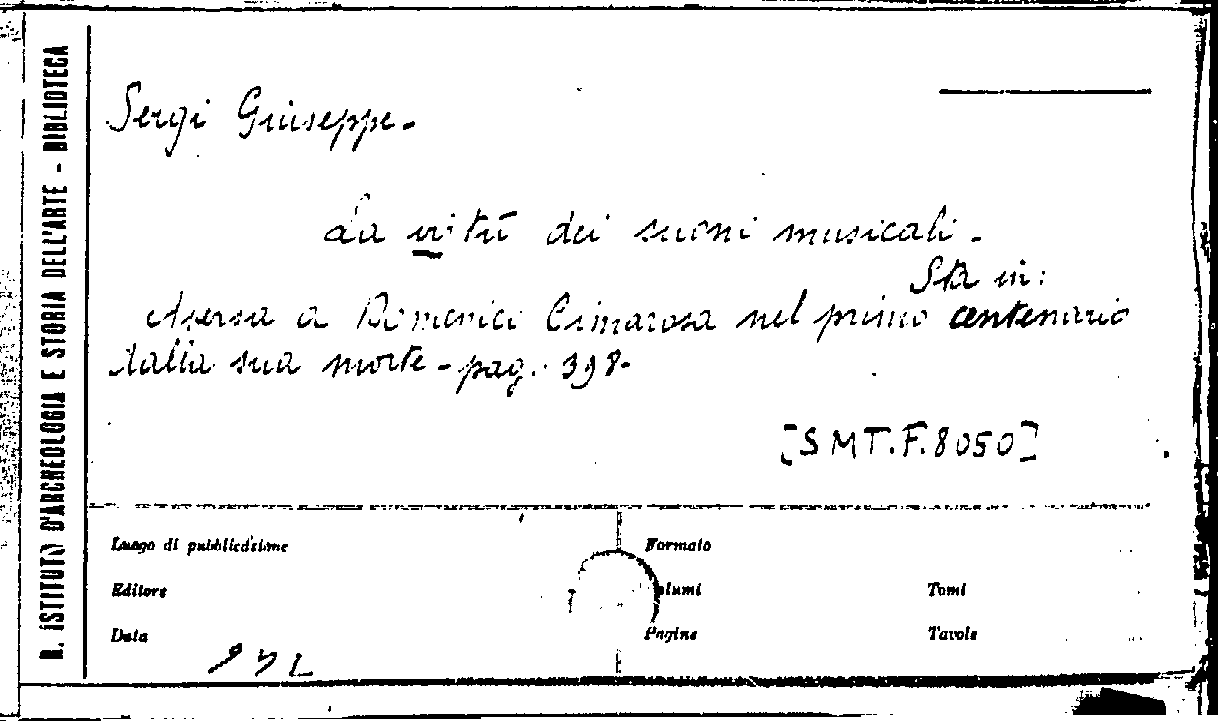 R. ISTITUTO D'ARCHEOLOGIA E STORIA DELL'ARTE - BIBLIOTECA
Sergi Giuseppe.
La virtù dei suoni musicali.
Sta in:
Aversa a Domenico Cimarosa nel primo centenario
dalla sua morte - pag. 398.
[SMT.F.8050]
Luogo di pubblicazione
Formato
Editore
Volumi
Tomi
Data
Pagine
Tavole